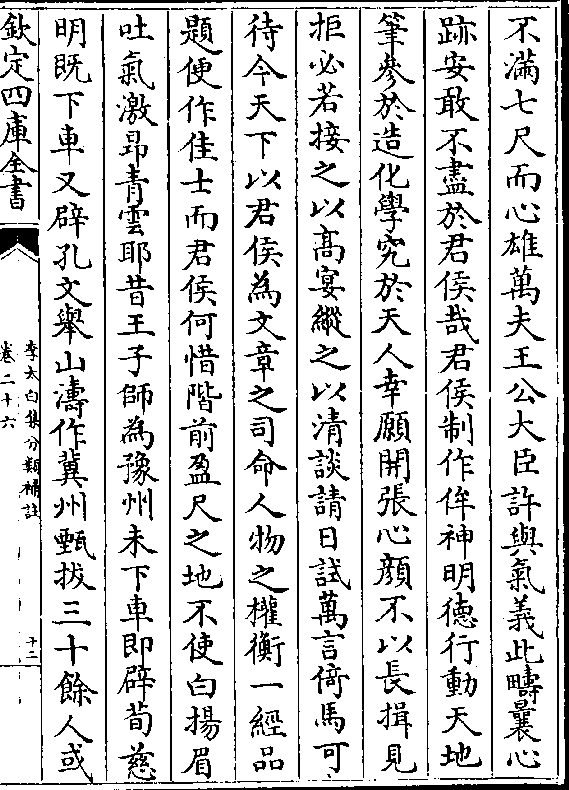 不滿七尺而心雄萬夫王公大臣許與氣義此疇曩心
跡安敢不盡於君侯哉君侯制作侔神明德行動天地
筆參於造化學究於天人幸願開張心顔不以長揖見
拒必若接之以髙宴縱之以清談請日試萬言倚馬可
待今天下以君侯為文章之司命人物之權衡一經品
題便作佳士而君侯何惜階前盈尺之地不使白揚眉
吐氣激昻青雲耶昔王子師為豫州未下車即辟荀慈
明既下車又辟孔文舉山濤作冀州甄拔三十餘人或
欽定四庫全書
李太白集分類補註
卷二十六
十二